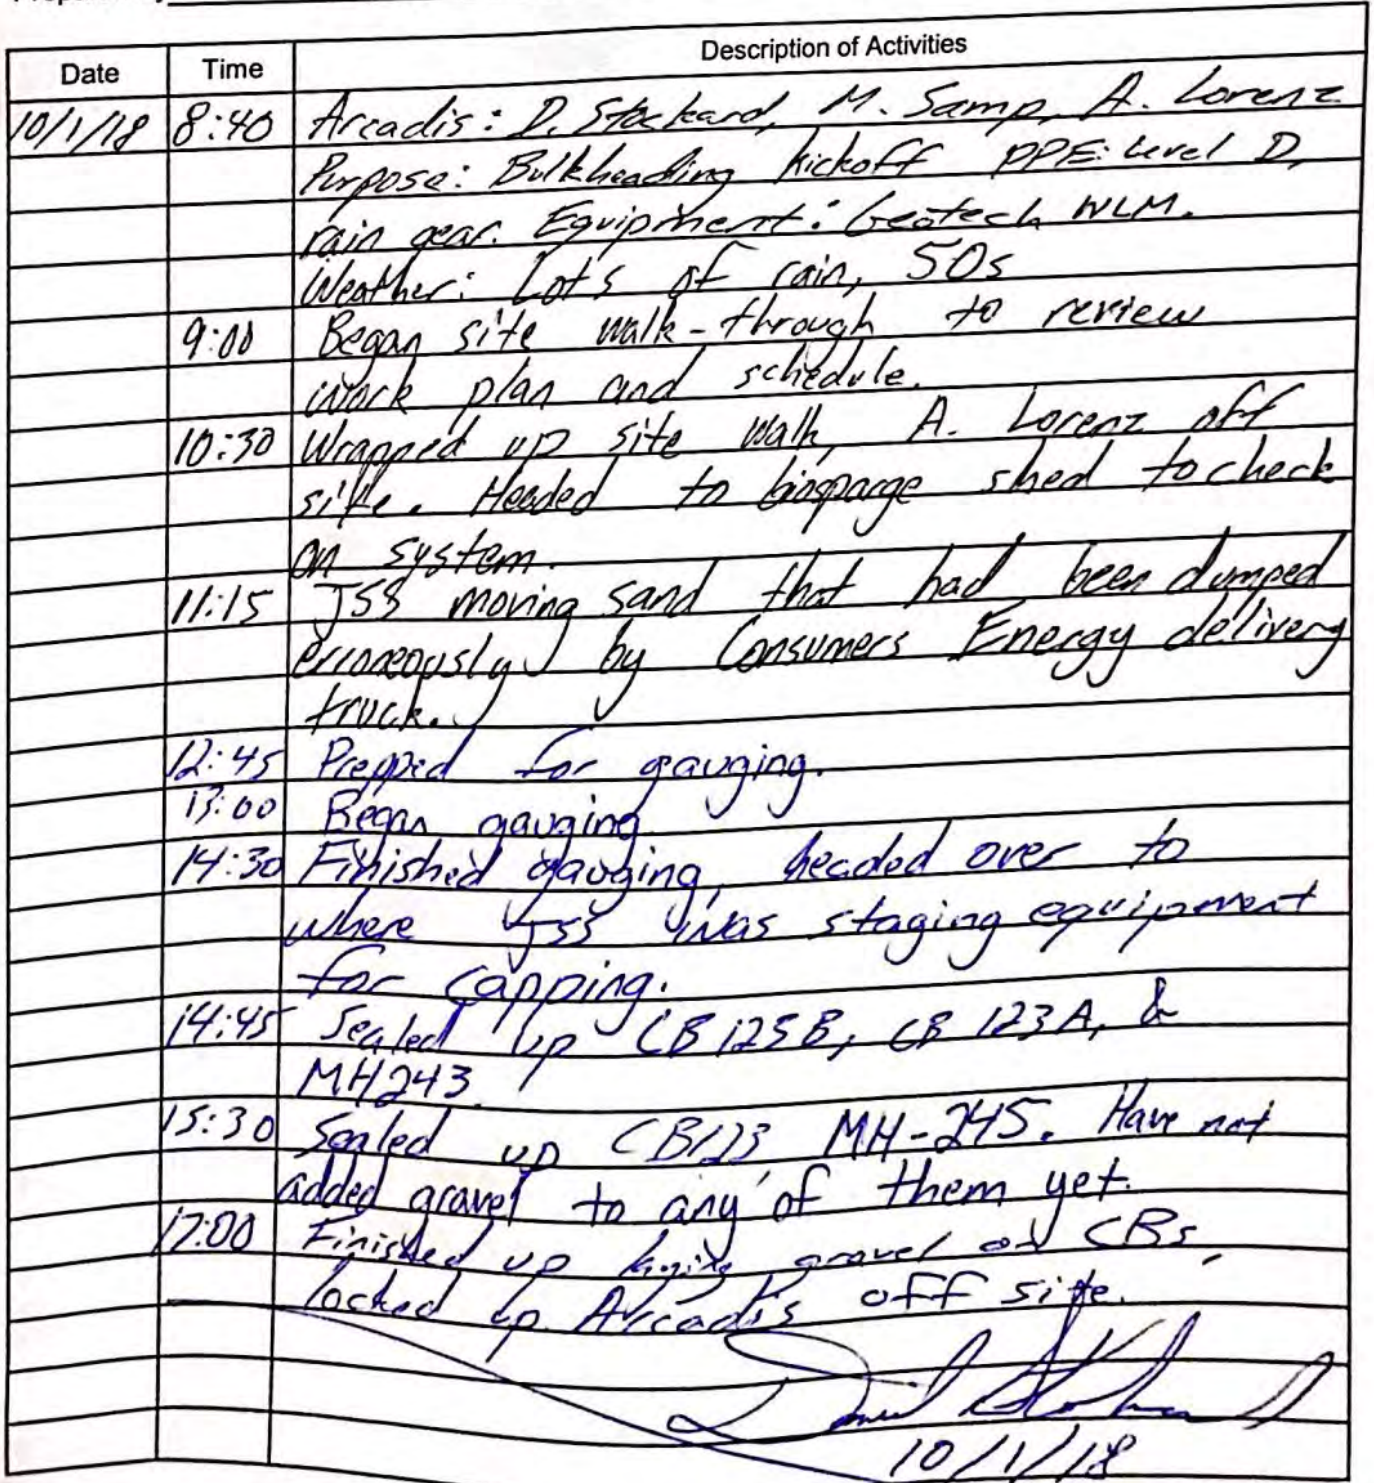 Date Time Description of Activities
10/1/18 8:40 Arcadis: D. Stockard, M. Samp, A. Lorenz
Purpose: Bulkheading kickoff PPE: Level D,
rain gear. Equipment: Geotech WLM.
Weather: Lots of rain, 50s
9:00 Began site walk-through to review
work plan and schedule.
10:30 Wrapped up site walk, A. Lorenz off
site. Headed to biosparge shed to check
on system.
11:15 JSS moving sand that had been dumped
erroneously by Consumers Energy delivery
truck.
12:45 Prepped for gauging.
13:00 Began gauging.
14:30 Finished gauging, headed over to
where JSS was staging equipment
for capping.
14:45 Sealed up CB 125B, CB 123A, &
MH243.
15:30 Sealed up CB123, MH-245. Have not
added gravel to any of them yet.
17:00 Finished up laying gravel on CBs,
locked up. Arcadis off site.
10/1/18